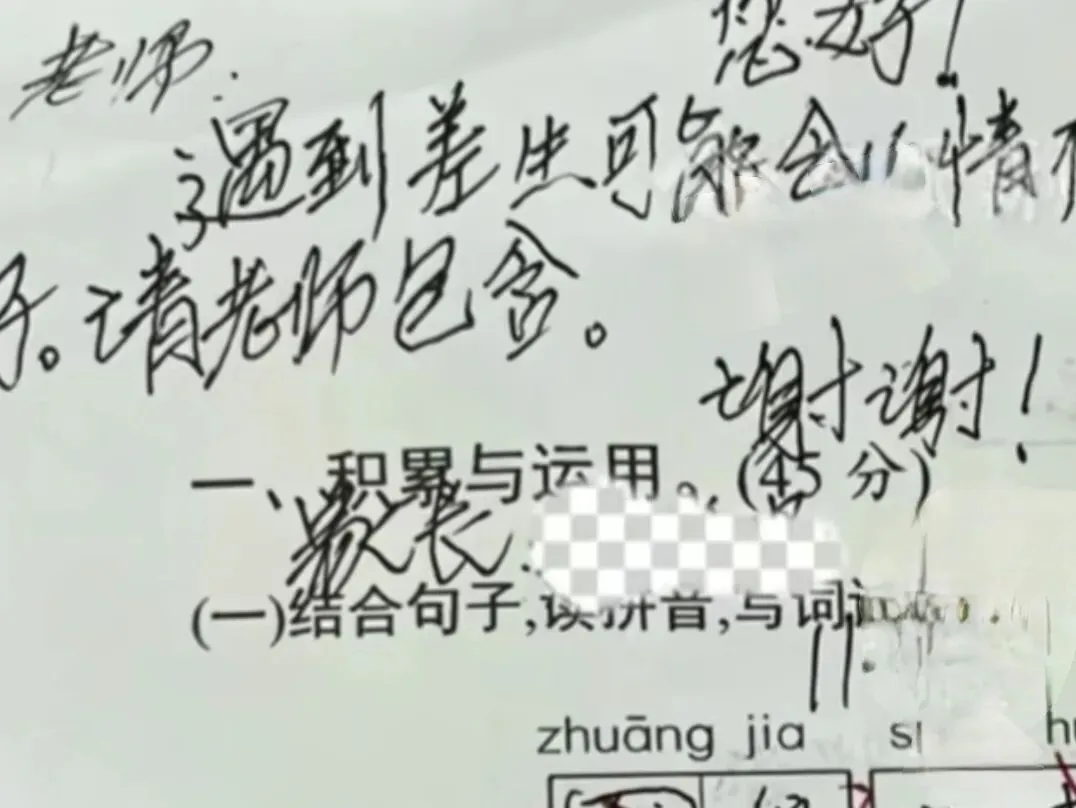 老师: 您好!
遇到差生可能会心情不
好。请老师包含。
谢谢!
一、积累与运用。(45分)
家长:
(一)结合句子,读拼音,写词
11.
zhuāng jia